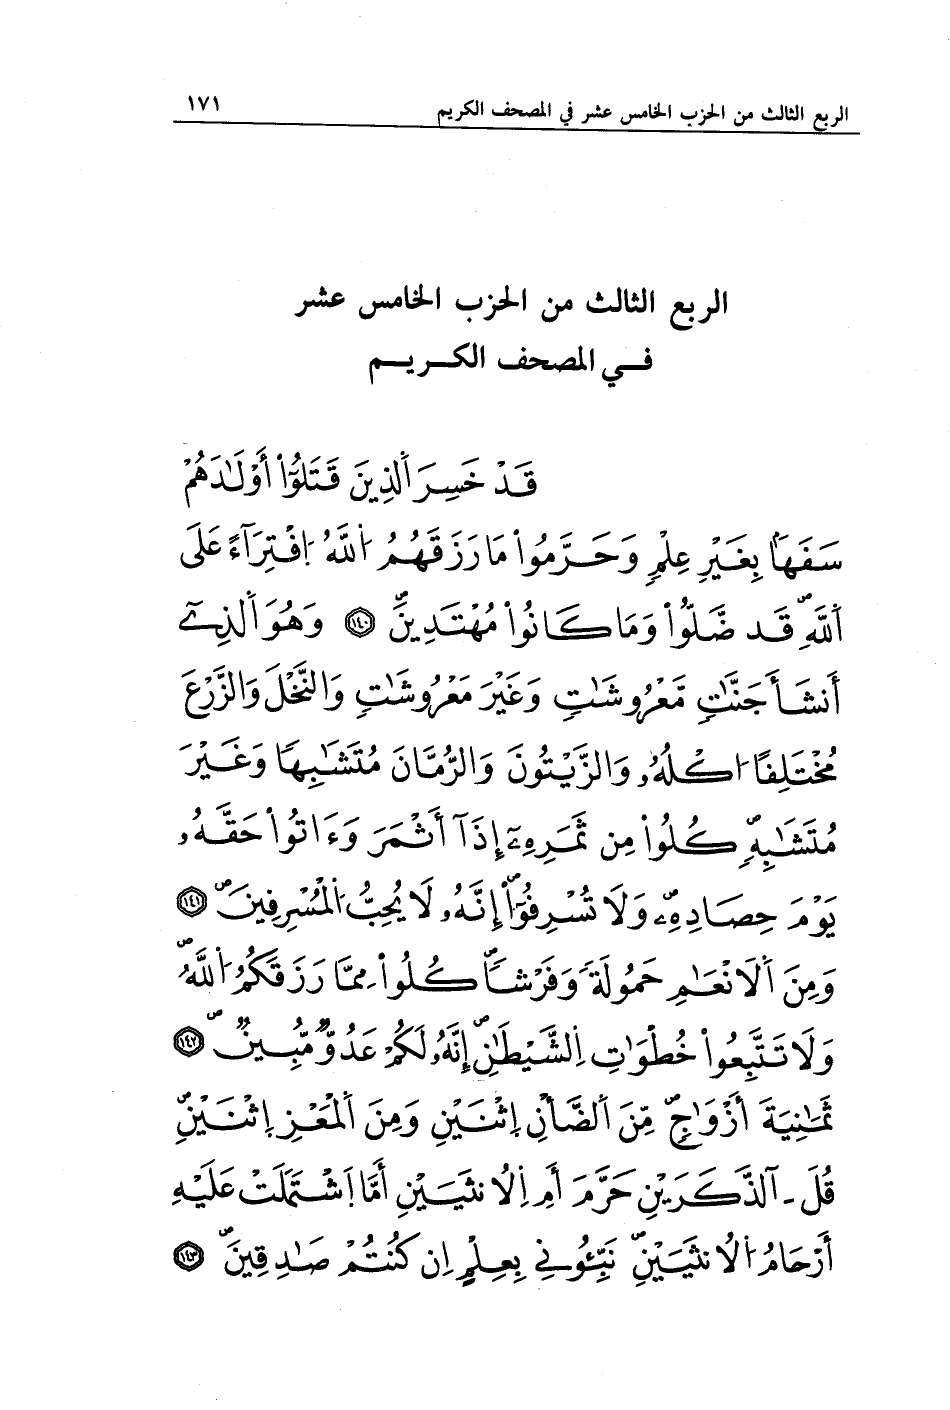 الربع الثالث من الحزب الخامس عشر في المصحف الكريم ١٧١
الربع الثالث من الحزب الخامس عشر
فـي المصحف الكـريـم
قَدْ خَسِرَ اَ۬لذِينَ قَتَلُوٓاْ أَوْلَٰدَهُمْ
سَفَهاَۢ بِغَيْرِ عِلْمٖ وَحَرَّمُواْ مَا رَزَقَهُمُ اُ۬للَّهُ اُ۪فْتِرَآءً عَلَي
اَ۬للَّهِۖ قَد ضَّلُّواْ وَمَا كَانُواْ مُهْتَدِينَۖ ١٤٠ وَهُوَ اَ۬لذِےٓ
أَنشَأَ جَنَّٰتٖ مَّعْرُوشَٰتٖ وَغَيْرَ مَعْرُوشَٰتٖ وَالنَّخْلَ وَالزَّرْعَ
مُخْتَلِفاً ا۟كْلُهُۥ وَالزَّيْتُونَ وَالرُّمَّانَ مُتَشَٰبِهاً وَغَيْرَ
مُتَشَٰبِهٖۖ كُلُواْ مِن ثَمَرِهِۦٓ إِذَآ أَثْمَرَ وَءَاتُواْ حَقَّهُۥ
يَوْمَ حِصَادِهِۦۖ وَلَا تُسْرِفُوٓاْۖ إِنَّهُۥ لَا يُحِبُّ اُ۬لْمُسْرِفِينَۖ ١٤١
وَمِنَ اَ۬لَانْعَٰمِ حَمُولَةً وَفَرْشاًۖ كُلُواْ مِمَّا رَزَقَكُمُ اُ۬للَّهُۖ
وَلَا تَتَّبِعُواْ خُطْوَٰتِ اِ۬لشَّيْطَٰنِۖ إِنَّهُۥ لَكُمْ عَدُوّٞ مُّبِينٞۖ ١٤٢
ثَمَٰنِيَةَ أَزْوَٰجٖۖ مِّنَ اَ۬لضَّأْنِ اِ۪ثْنَيْنِ وَمِنَ اَ۬لْمَعْزِ اِ۪ثْنَيْنِۖ
قُلَ ـ آلذَّكَرَيْنِ حَرَّمَ أَمِ اِ۬لُانثَيَيْنِ أَمَّا اَ۪شْتَمَلَتْ عَلَيْهِ
أَرْحَامُ اُ۬لُانثَيَيْنِۖ نَبِّـُٔونِي بِعِلْمٍ اِن كُنتُمْ صَٰدِقِينَۖ ١٤٣